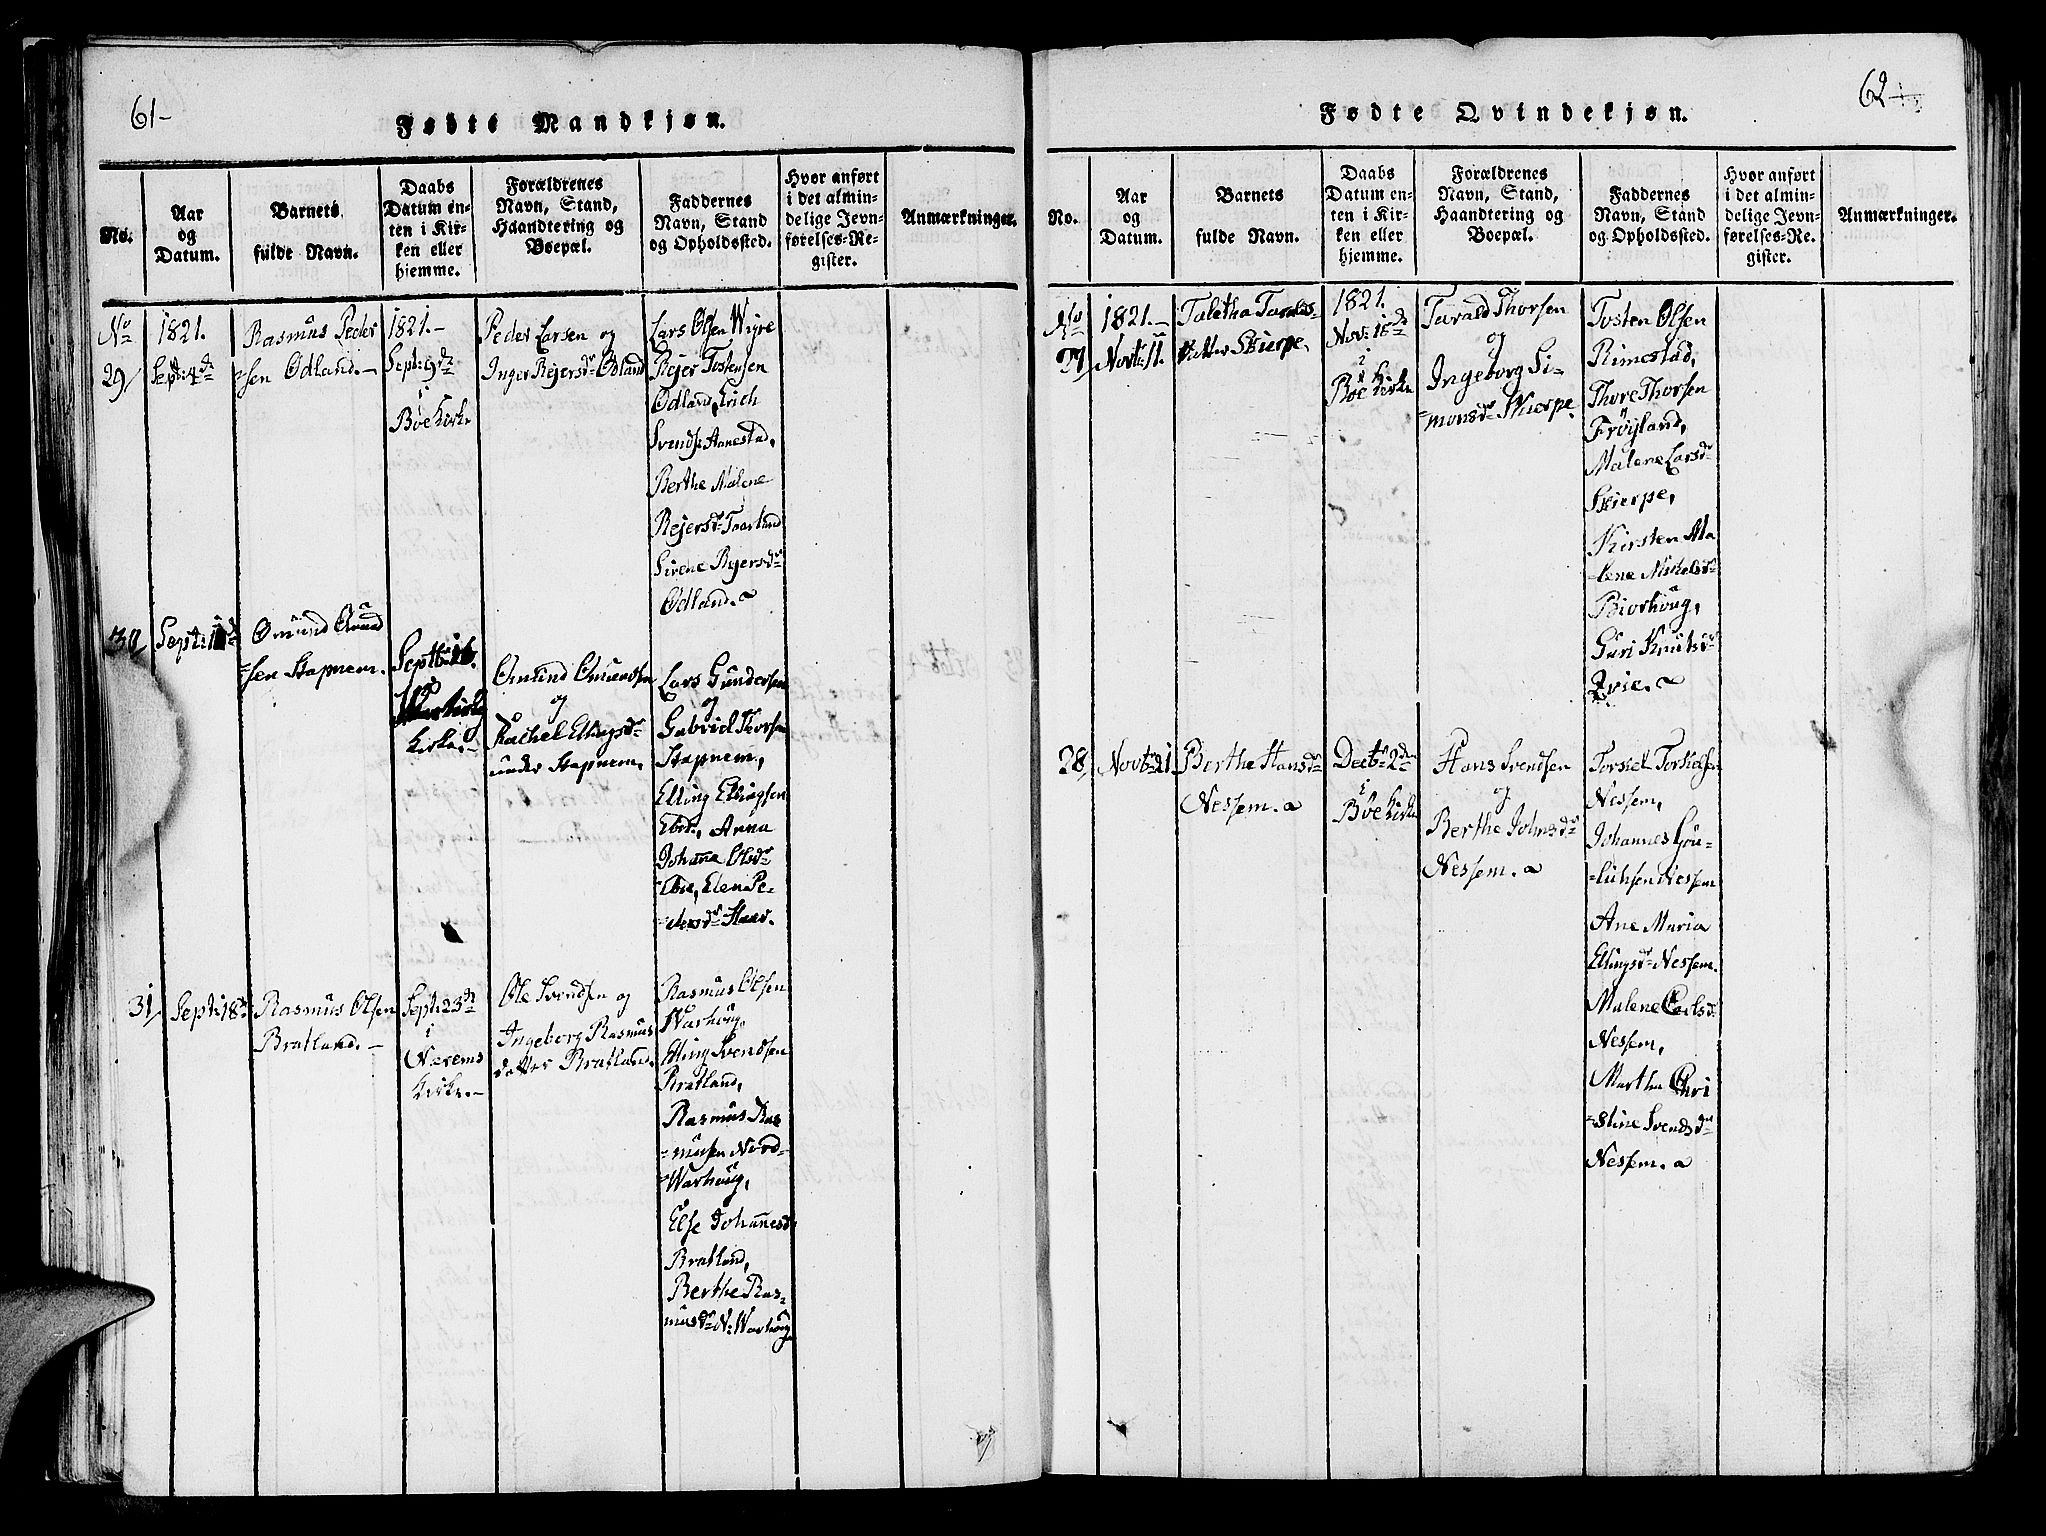 61-
Fødte Mandkjøn.
No.
Aar
og
Datum.
Barnets
fulde Navn.
Daabs
Datum en-
ten i Kir-
ken eller
hjemme.
Forældrenes
Navn, Stand,
Haandtering og
Boepæl.
Faddernes
Navn, Stand
og Opholdssted.
Hvor anført
i det almin-
delige Jevn-
førelses-Re-
gister.
Anmærkninger.
No
29/
1821.
Septb: 4de
Rasmus Peder
=sen Ødland.-
1821.-
Septb: 9de
i
Bøe Kirke
Peder Larsen og
Inger Rejersdr Ødland
Lars Olsen Wigre
Rejer Tostensen
Ødland, Erich
Svends. Aanestad,
Berthe Malene
Rejersdr Taarland
Sirene Rejersdr
Ødland.
30/
Septb:
Omund Omund
=sen Stapnem.
Septb: 16.
Kirke.-
Omund Omundsen
og
Rachel Ellingsdr
under Stapnem,
Lars Gundersen
og
Gabriel Thorsen
Stapnem,
Elling Ellingsen
Ebde, Anna
Johanna Olsdr
Ebde, Elen Pe-
=dersdr Haar.
31/
Septb: 18de
Rasmus Olsen
Bratland.-
Septb: 23de
i
Nærems
Kirke.-
Ole Svendsen og
Ingeborg Rasmus
datter Bratland.
Rasmus Olsen
Warhoug,
Elling Svendsen
Bratland,
Rasmus Ras
=musen Nord-
=Warhoug,
Else Johannesd
Bratland,
Berthe Ras-
musdr N: Warhoug
62
Fødte Qvindekjøn.
No.
Aar
og
Datum.
Barnets
fulde Navn.
Daabs
Datum en-
ten i Kir-
ken eller
hjemme.
Forældrenes
Navn, Stand,
Haandtering og
Boepæl.
Faddernes
Navn, Stand
og Opholdssted.
Hvor anført
i det almin-
delige Jevn-
førelses-Re-
gister.
Anmærkninger.
No
27
1821.-
Novb: 11.
Taletha Taralds-
datter Skierpe,
1821.
Nov: 18de
i
Bøe Kirke
Tarald Thorsen
og
Ingeborg Si-
=monsdr Skierpe.
Tosten Olsen
Rimestad,
Thore Thorsen
Frøyland,
Malene Larsdr
Skierpe,
Kirsten Ma
=lene Mikelsdr
Biorhoug,
Guri Knutsdr
28/
Novbr 21
Berthe Hansdr
Nessem.
Decbr 2den
i
Bøe Kirke
Hans Svendsen
og
Berthe Johnsdr
Nessem.
Torkiel Torkielsen
Nessem,
Johannes Gou-
=tichsen Nessem
Ane Maria
Ellingsdr Nessem.
Malene Carlsdr
Nessem,
Martha Chri
=stine Svendsdr
Nessem.